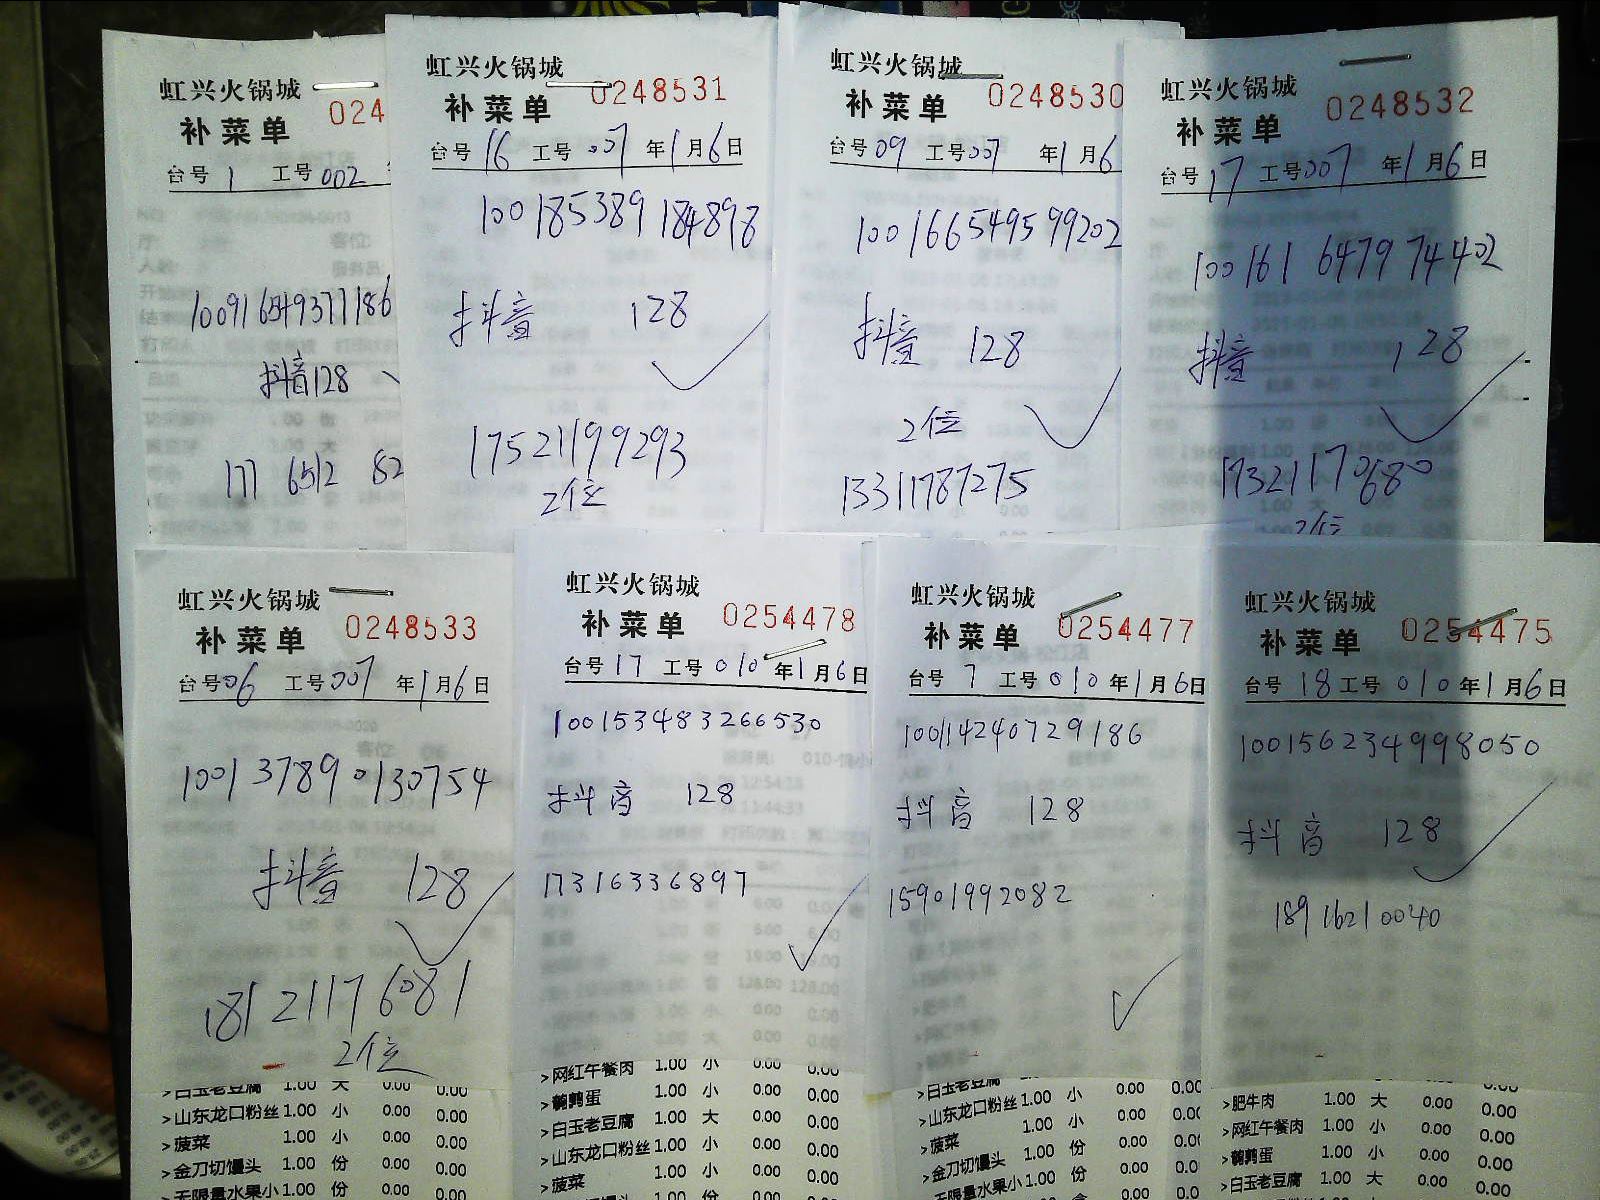 虹兴火锅城
024
补菜单
台号 1 工号 002
10091654937 7186
抖音128
177 6512 82
虹兴火锅城
0248531
补菜单
台号 16 工号 007 年 1 月 6 日
100185389184898
抖音 128
17521199293
2位
虹兴火锅城
0248530
补菜单
台号 09 工号 007 年 1 月 6
1001665495 99202
抖音 128
2位
13311787275
虹兴火锅城
0248532
补菜单
台号 17 工号 007 年 1 月 6 日
100161 6479 74402
抖音 128
17321170680
2位
虹兴火锅城
0248533
补菜单
台号 06 工号 007 年 1 月 6 日
100137890130754
抖音 128
18121176081
2位
>白玉老豆腐 1.00 大 0.00 0.00
>山东龙口粉丝 1.00 小 0.00 0.00
>菠菜 1.00 小 0.00 0.00
>金刀切馒头 1.00 份 0.00 0.00
>无限量水果小 1.00 份 0.00 0.00
虹兴火锅城
0254478
补菜单
台号 17 工号 010 年 1 月 6 日
100153483266530
抖音 128
17316336897
>网红午餐肉 1.00 小 0.00 0.00
>鹌鹑蛋 1.00 小 0.00 0.00
>白玉老豆腐 1.00 大 0.00 0.00
>山东龙口粉丝 1.00 小 0.00 0.00
>菠菜 1.00 小 0.00 0.00
虹兴火锅城
0254477
补菜单
台号 7 工号 010 年 1 月 6 日
100114240729186
抖音 128
15901992082
>白玉老豆腐 1.00 大 0.00 0.00
>山东龙口粉丝 1.00 小 0.00 0.00
>菠菜 1.00 小 0.00 0.00
>金刀切馒头 1.00 份 0.00 0.00
>无限量水果小 1.00 份 0.00 0.00
虹兴火锅城
0254475
补菜单
台号 18 工号 010 年 1 月 6 日
100156234998050
抖音 128
18916210040
>肥牛肉 1.00 大 0.00 0.00
>网红午餐肉 1.00 小 0.00 0.00
>鹌鹑蛋 1.00 小 0.00 0.00
>白玉老豆腐 1.00 大 0.00 0.00